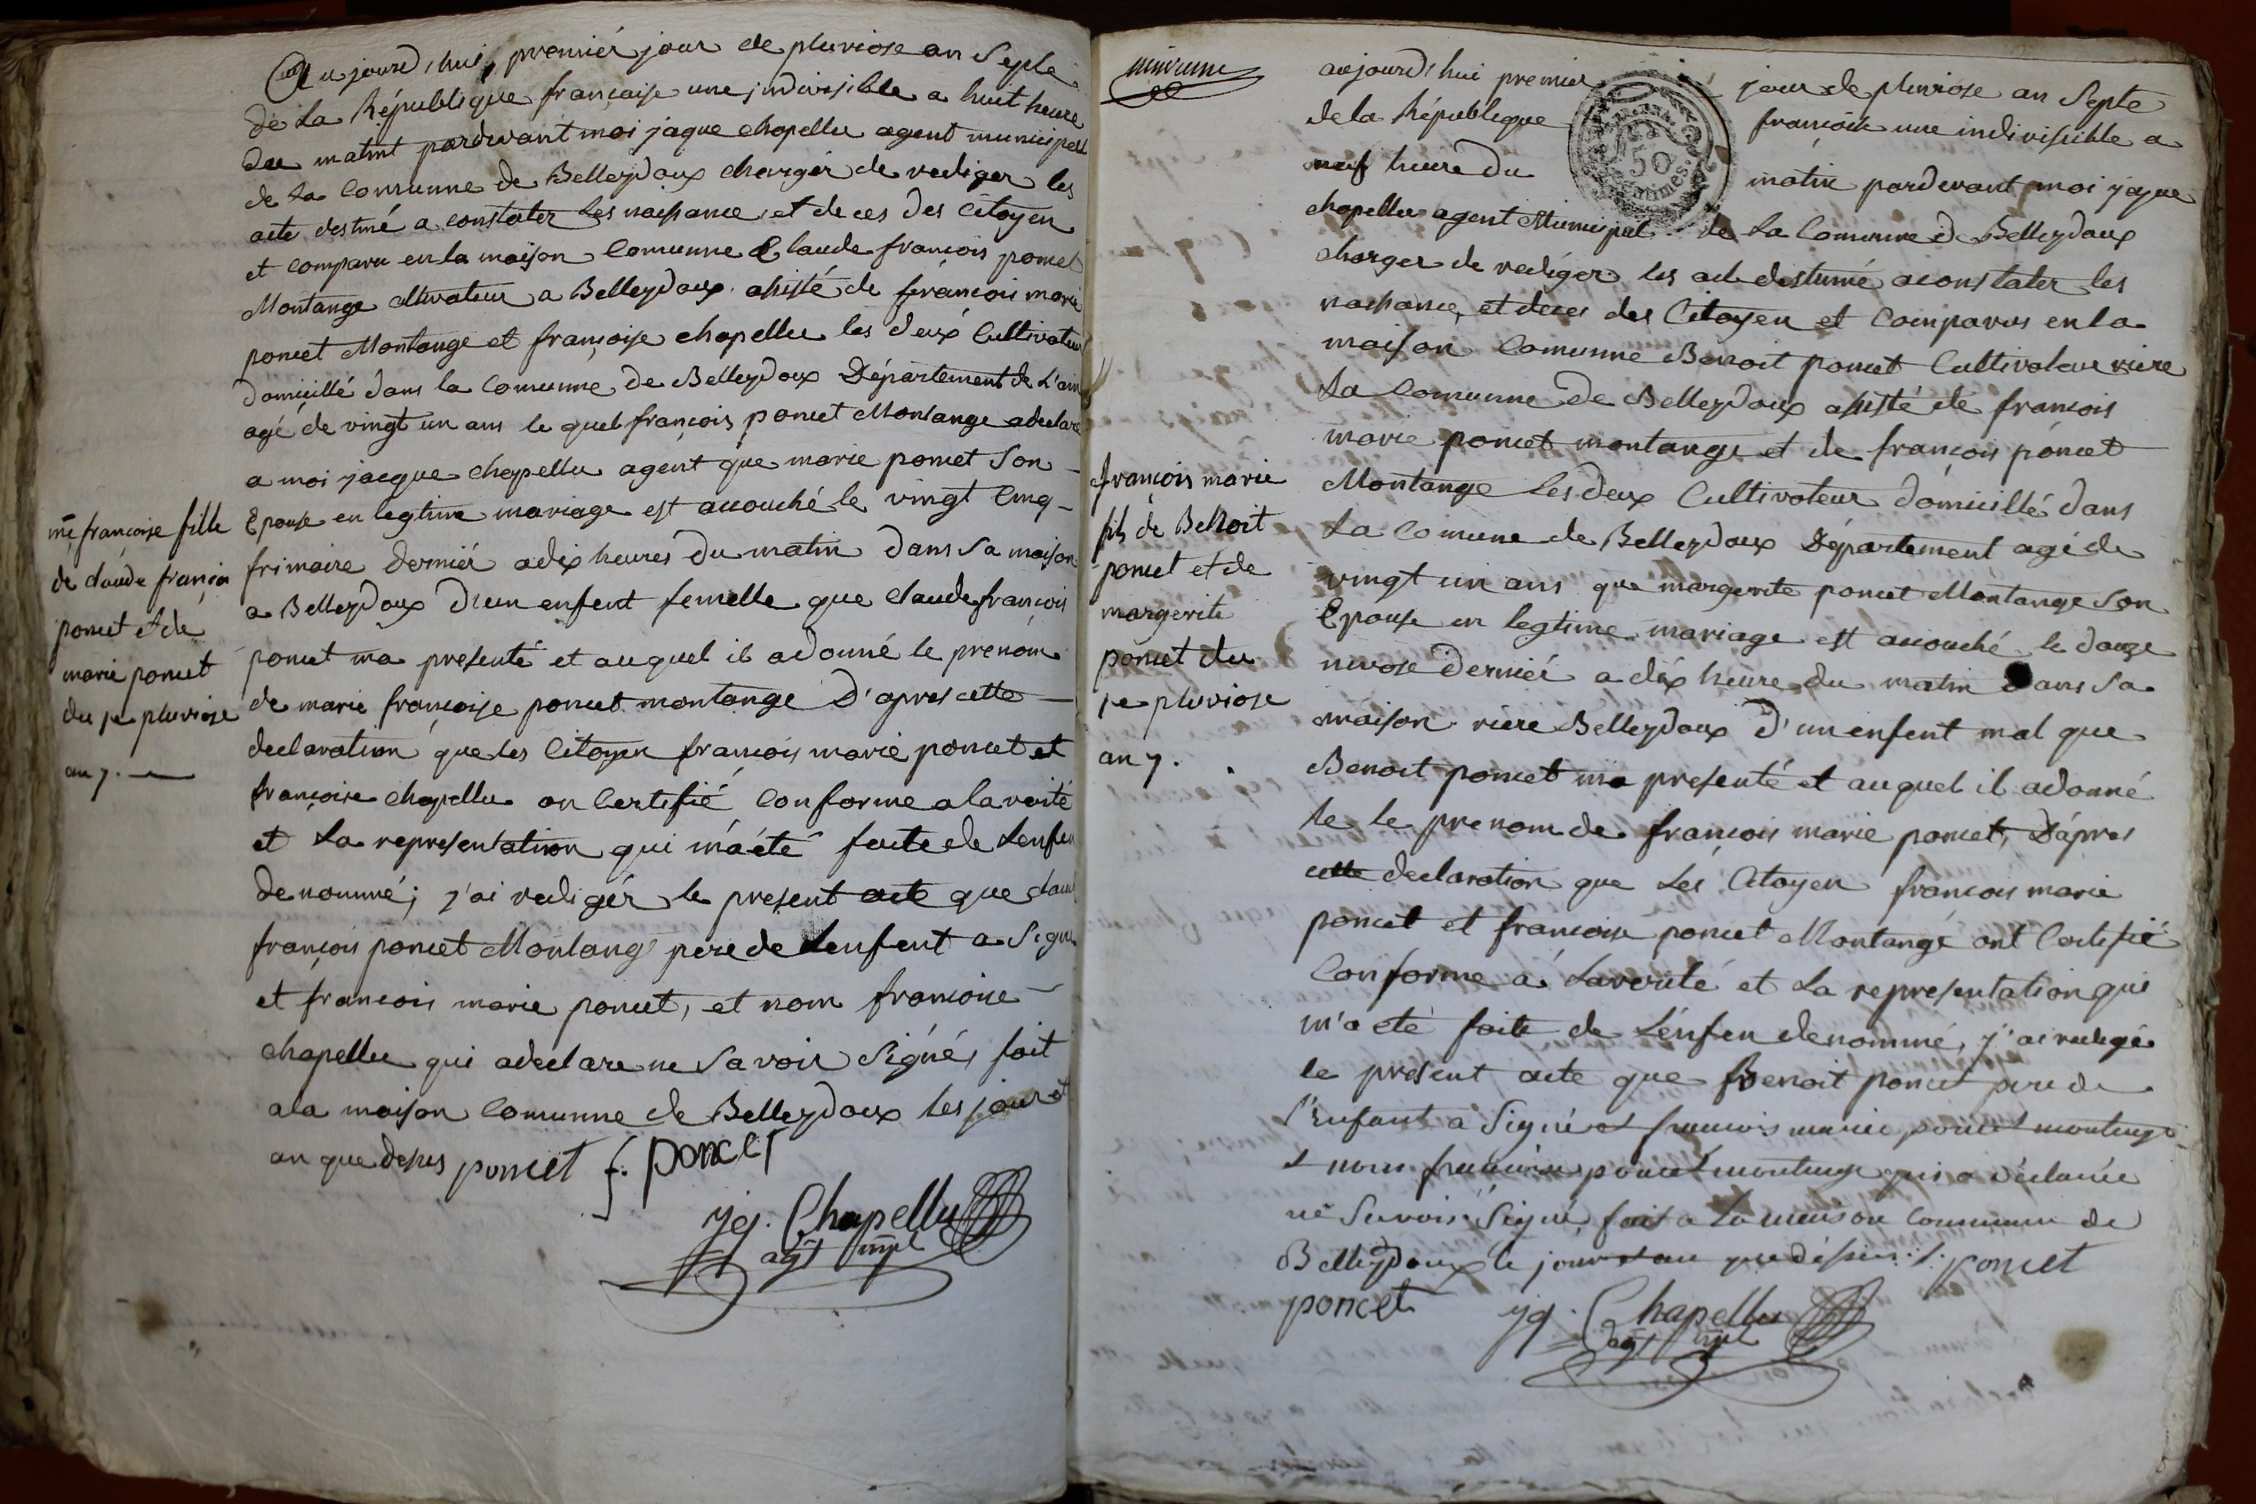 Aujourd'hui, premier jour de pluviose an Septe
de La République francaise une indivisible a huit heure
du matint pardevant moi jaque chapellu agent municipal
de La Comunne de Belleydoux charger de rediger les
acte destiné a constater Les naissance et deces des Citoyen
et comparu en la maison Comunne Claude francois poncet
Montange cultivateur a Belleydoux assisté de francois marie
poncet Montange et françoise chapellu les deux Cultivateur
domicillé dans la Comunne de Belleydoux Département de L'ain
agé de vingt un ans le quel françois poncet Montange a declare
a moi jacque chapellu agent que marie poncet Son
Epouse en legtime mariage est accouché le vingt Cinq
frimaire dernier a dix heures du matin dans Sa maison
a Belleydoux d'un enfent femelle que Claude francois
poncet ma presenté et auquel il a donné le prenom
de marie françoise poncet montange D'apres cette
declaration que les Citoyen francois marie poncet et
françoise chapellu on Certifié Conforme a la verité
et La representation qui m'a été faite de Lenfen
denommé; j'ai rediger le present acte que Claud
françois poncet Montang pere de Lenfent a Signé
et francois marie poncet, et nom francoise
chapellu qui a declare ne Savoir Signés fait
a la maison Comunne de Belleydoux les jour et
an que desus poncet f. poncet
jq. Chapellu
agt mpl
me francoise fille
de claude françoi
poncet et de
marie poncet
du 1e pluviose
an 7.
aujourd'hui premier jour de pluviose an Septe
de la République françoise une indivisible a
neuf heure du matin pardevant moi jaque
50
centimes
chapellu agent Municipal de La Comunne de Belleydoux
charger de rediger les act destinné a constater les
naissance, et deces des Citoyen et Comparus en la
maison Comunne Benoit poncet Cultivateur riere
La Comunne de Belleydoux assisté de francois
marie poncet montange et de francois poncet
Montange Les deux Cultivateur domicillé dans
La Comune de Belleydoux Département agé de
vingt un ans que margerite poncet Montange Son
Epouse en legtime mariage est accouché le douze
nivose dernier a dix heure du matin Dans Sa
maison riere Belleydoux d'un enfent mal que
Benoit poncet ma presenté et auquel il a donné
le le prenom de françois marie poncet, D'apres
cette declaration que Les Citoyen francois marie
poncet et francoise poncet Montange ont Certifié
Conforme a La verité et La representation qui
m'a été faite de L'enfen denommé, j'ai redigé
le present acte que Benoit poncet pere de
l'Enfant a Signé et francois marie poncet montenge
et nom francoise poncet montenge qui a déclarée
ne Savoir Signé, fait a La maison Commune de
Belleydoux le jour et an que déssus. f. poncet
poncet jq. Chapellu
agt mpl
françois marie
fils de Benoit
poncet et de
margerite
poncet du
1e pluviose
an 7.